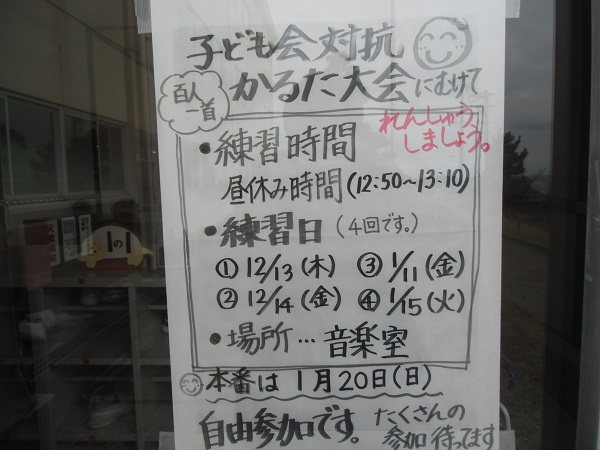 子ども会対抗
百人一首
かるた大会にむけて
れんしゅう
しましょう。
・練習時間
昼休み時間(12:50~13:10)
・練習日(4回です。)
①12/13(木) ③1/11(金)
②12/14(金) ④1/15(火)
・場所…音楽室
本番は1月20日(日)
自由参加です。たくさんの
参加待ってます
1の1